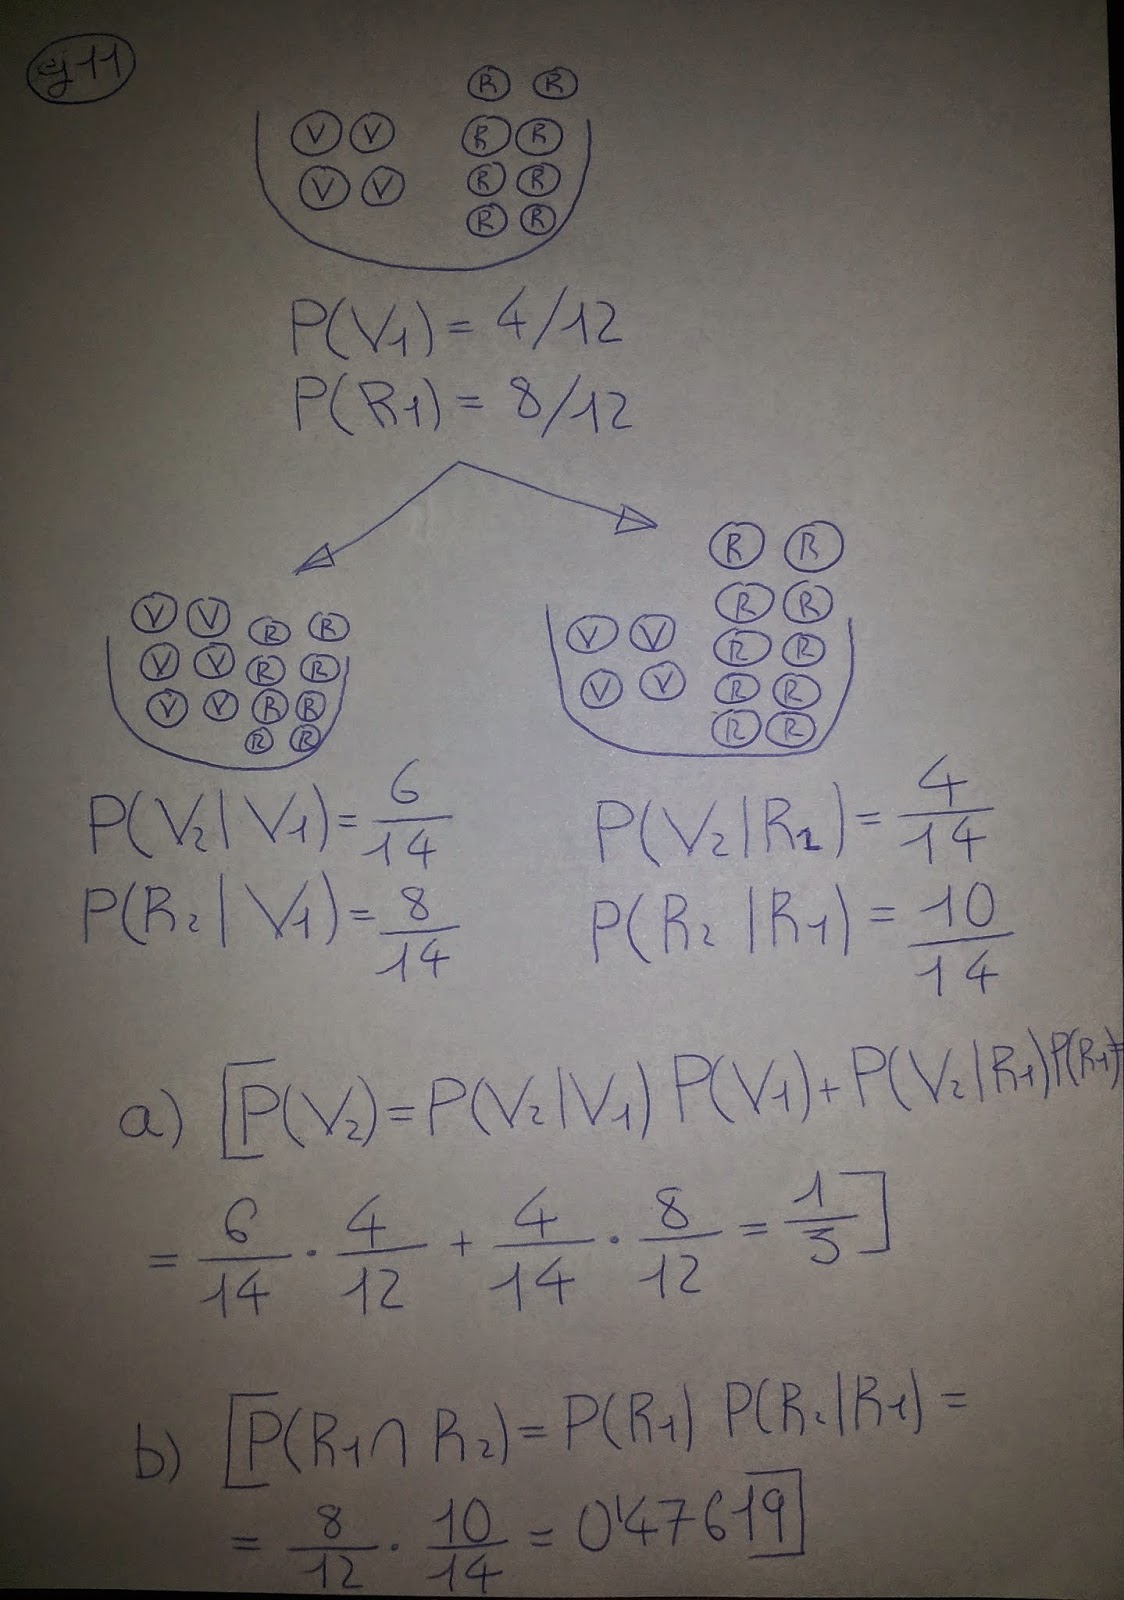 ej 11
R R
V V R R
V V R R
R R
P(V1) = 4/12
P(R1) = 8/12
V V R R
V V R R
V V R R
R R
R R
V V R R
V V R R
R R
R R
P(V2 | V1) = 6/14
P(R2 | V1) = 8/14
P(V2 | R1) = 4/14
P(R2 | R1) = 10/14
a) [P(V2) = P(V2 | V1) P(V1) + P(V2 | R1) P(R1) =
= 6/14 · 4/12 + 4/14 · 8/12 = 1/3]
b) [P(R1 ∩ R2) = P(R1) P(R2 | R1) =
= 8/12 · 10/14 = 0'47619]